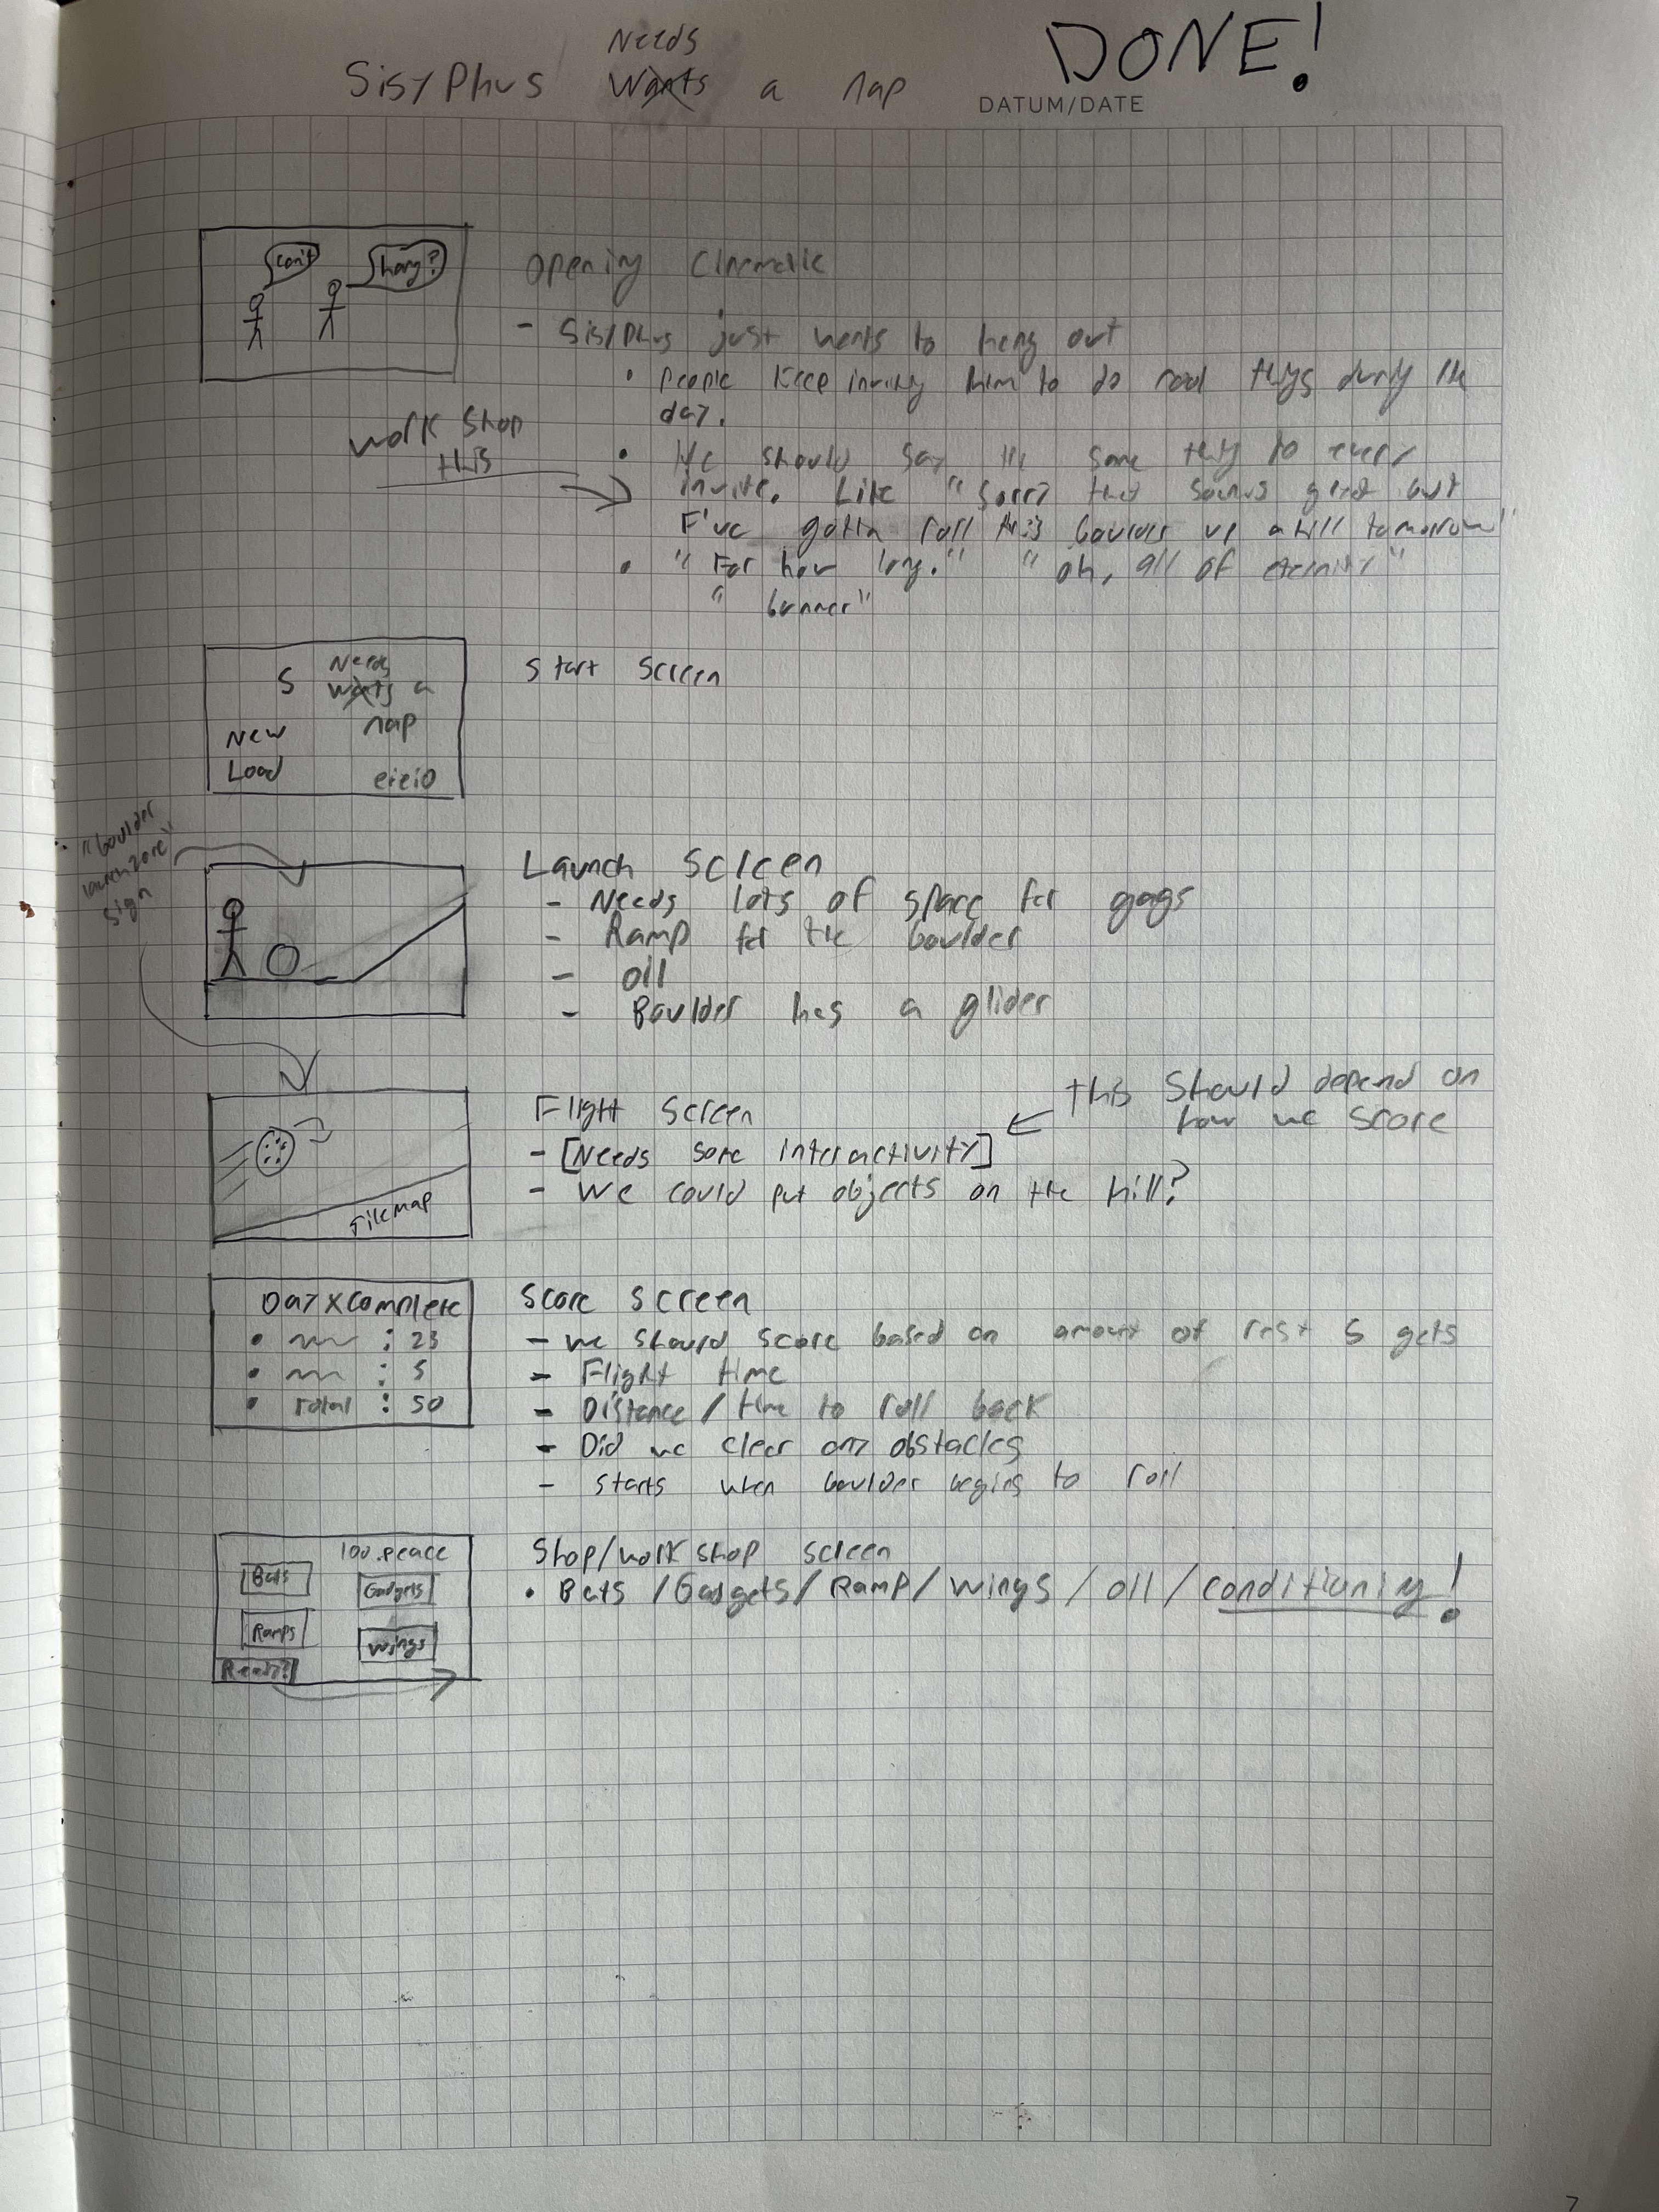 Needs
Sisyphus Wants a nap
DONE!
DATUM/DATE
can't
hang?
Opening Cinematic
- Sisyphus just wants to hang out
• People keep inviting him to do cool things during the
day.
work shop
this
• He should say the same thing to every
invite. Like "Sorry that sounds great but
I've gotta roll this boulder up a hill tomorrow"
• "For how long." "oh, all of eternity"
"bummer"
S Needs
Wants a
nap
New
Load
eieio
Start Screen
"boulder
launch zone"
sign
Launch Screen
- Needs lots of space for gags
- Ramp for the boulder
- oil
- Boulder has a glider
Tilemap
Flight Screen
- [Needs some interactivity]
this should depend on
how we score
- We could put objects on the hill?
Day X Complete
• : 23
• : 5
• Total : 50
Score Screen
- we should score based on amount of rest S gets
- Flight time
- Distance/time to roll back
- Did we clear any obstacles
- starts when boulder begins to roll
100.peace
Bats
Gadgets
Ramps
Wings
Ready?
Shop/work shop screen
• Bats/Gadgets/Ramp/Wings/oil/conditioning!
7